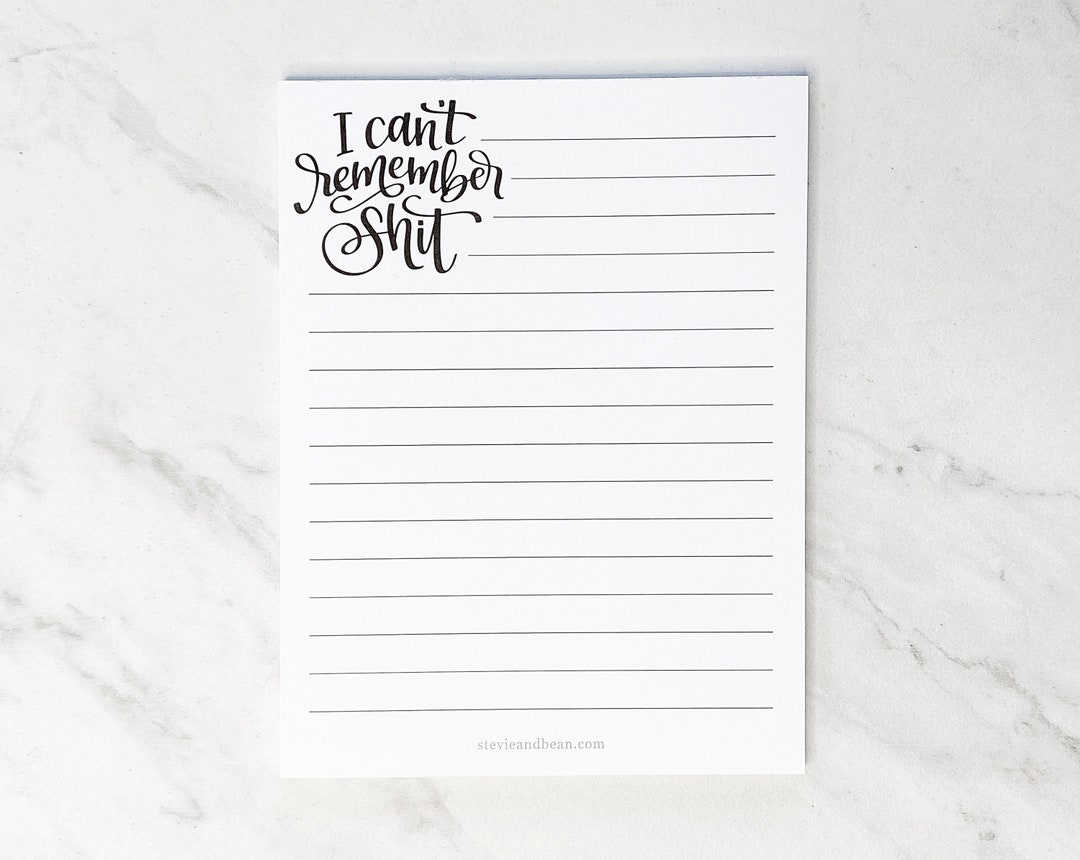 I can't
remember
shit
stevieandbean.com